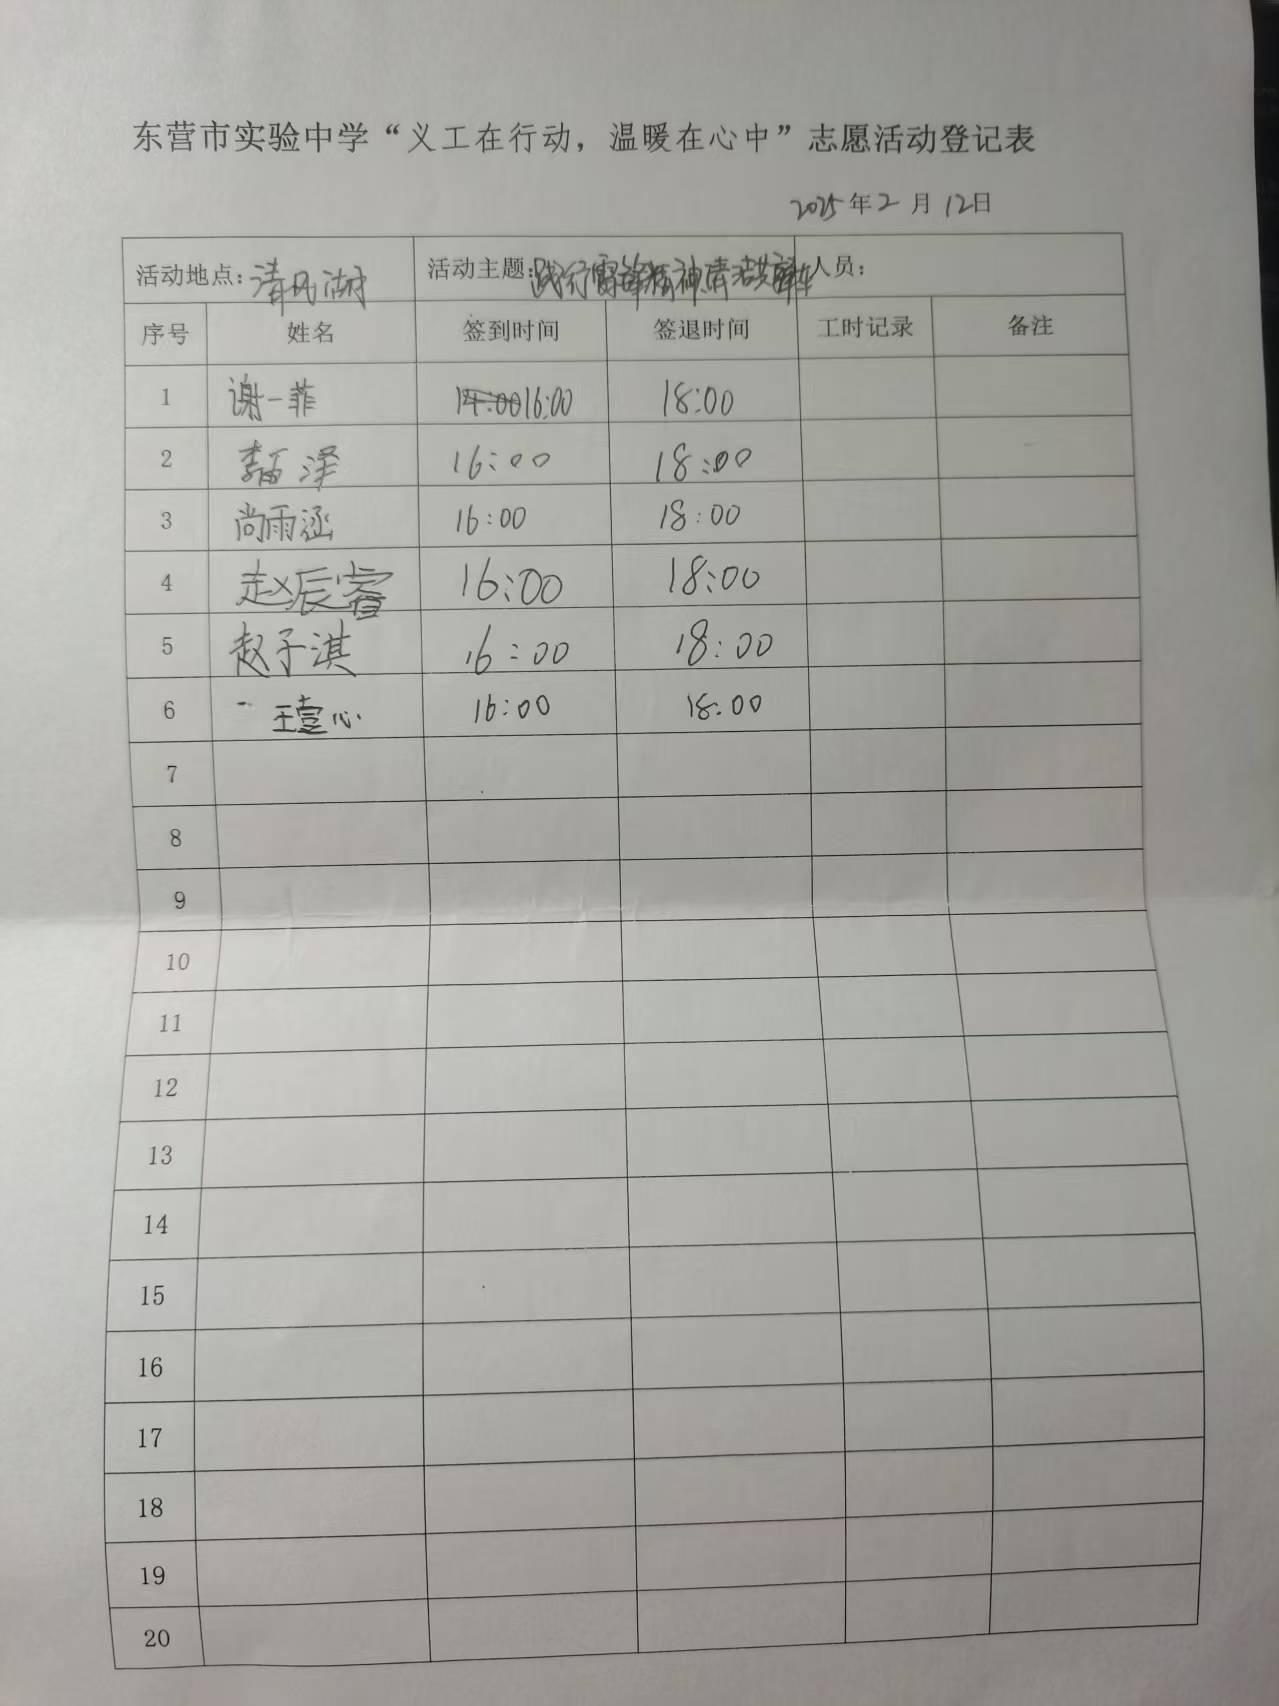 东营市实验中学“义工在行动，温暖在心中”志愿活动登记表
2025年2月12日
活动地点：清风湖 活动主题：践行雷锋精神清洁共享单车 人员：
序号 姓名 签到时间 签退时间 工时记录 备注
1 谢一菲 16:00 18:00
2 泽 16:00 18:00
3 尚雨涵 16:00 18:00
4 赵辰睿 16:00 18:00
5 赵子淇 16:00 18:00
6 王壹心 16:00 18:00
7
8
9
10
11
12
13
14
15
16
17
18
19
20